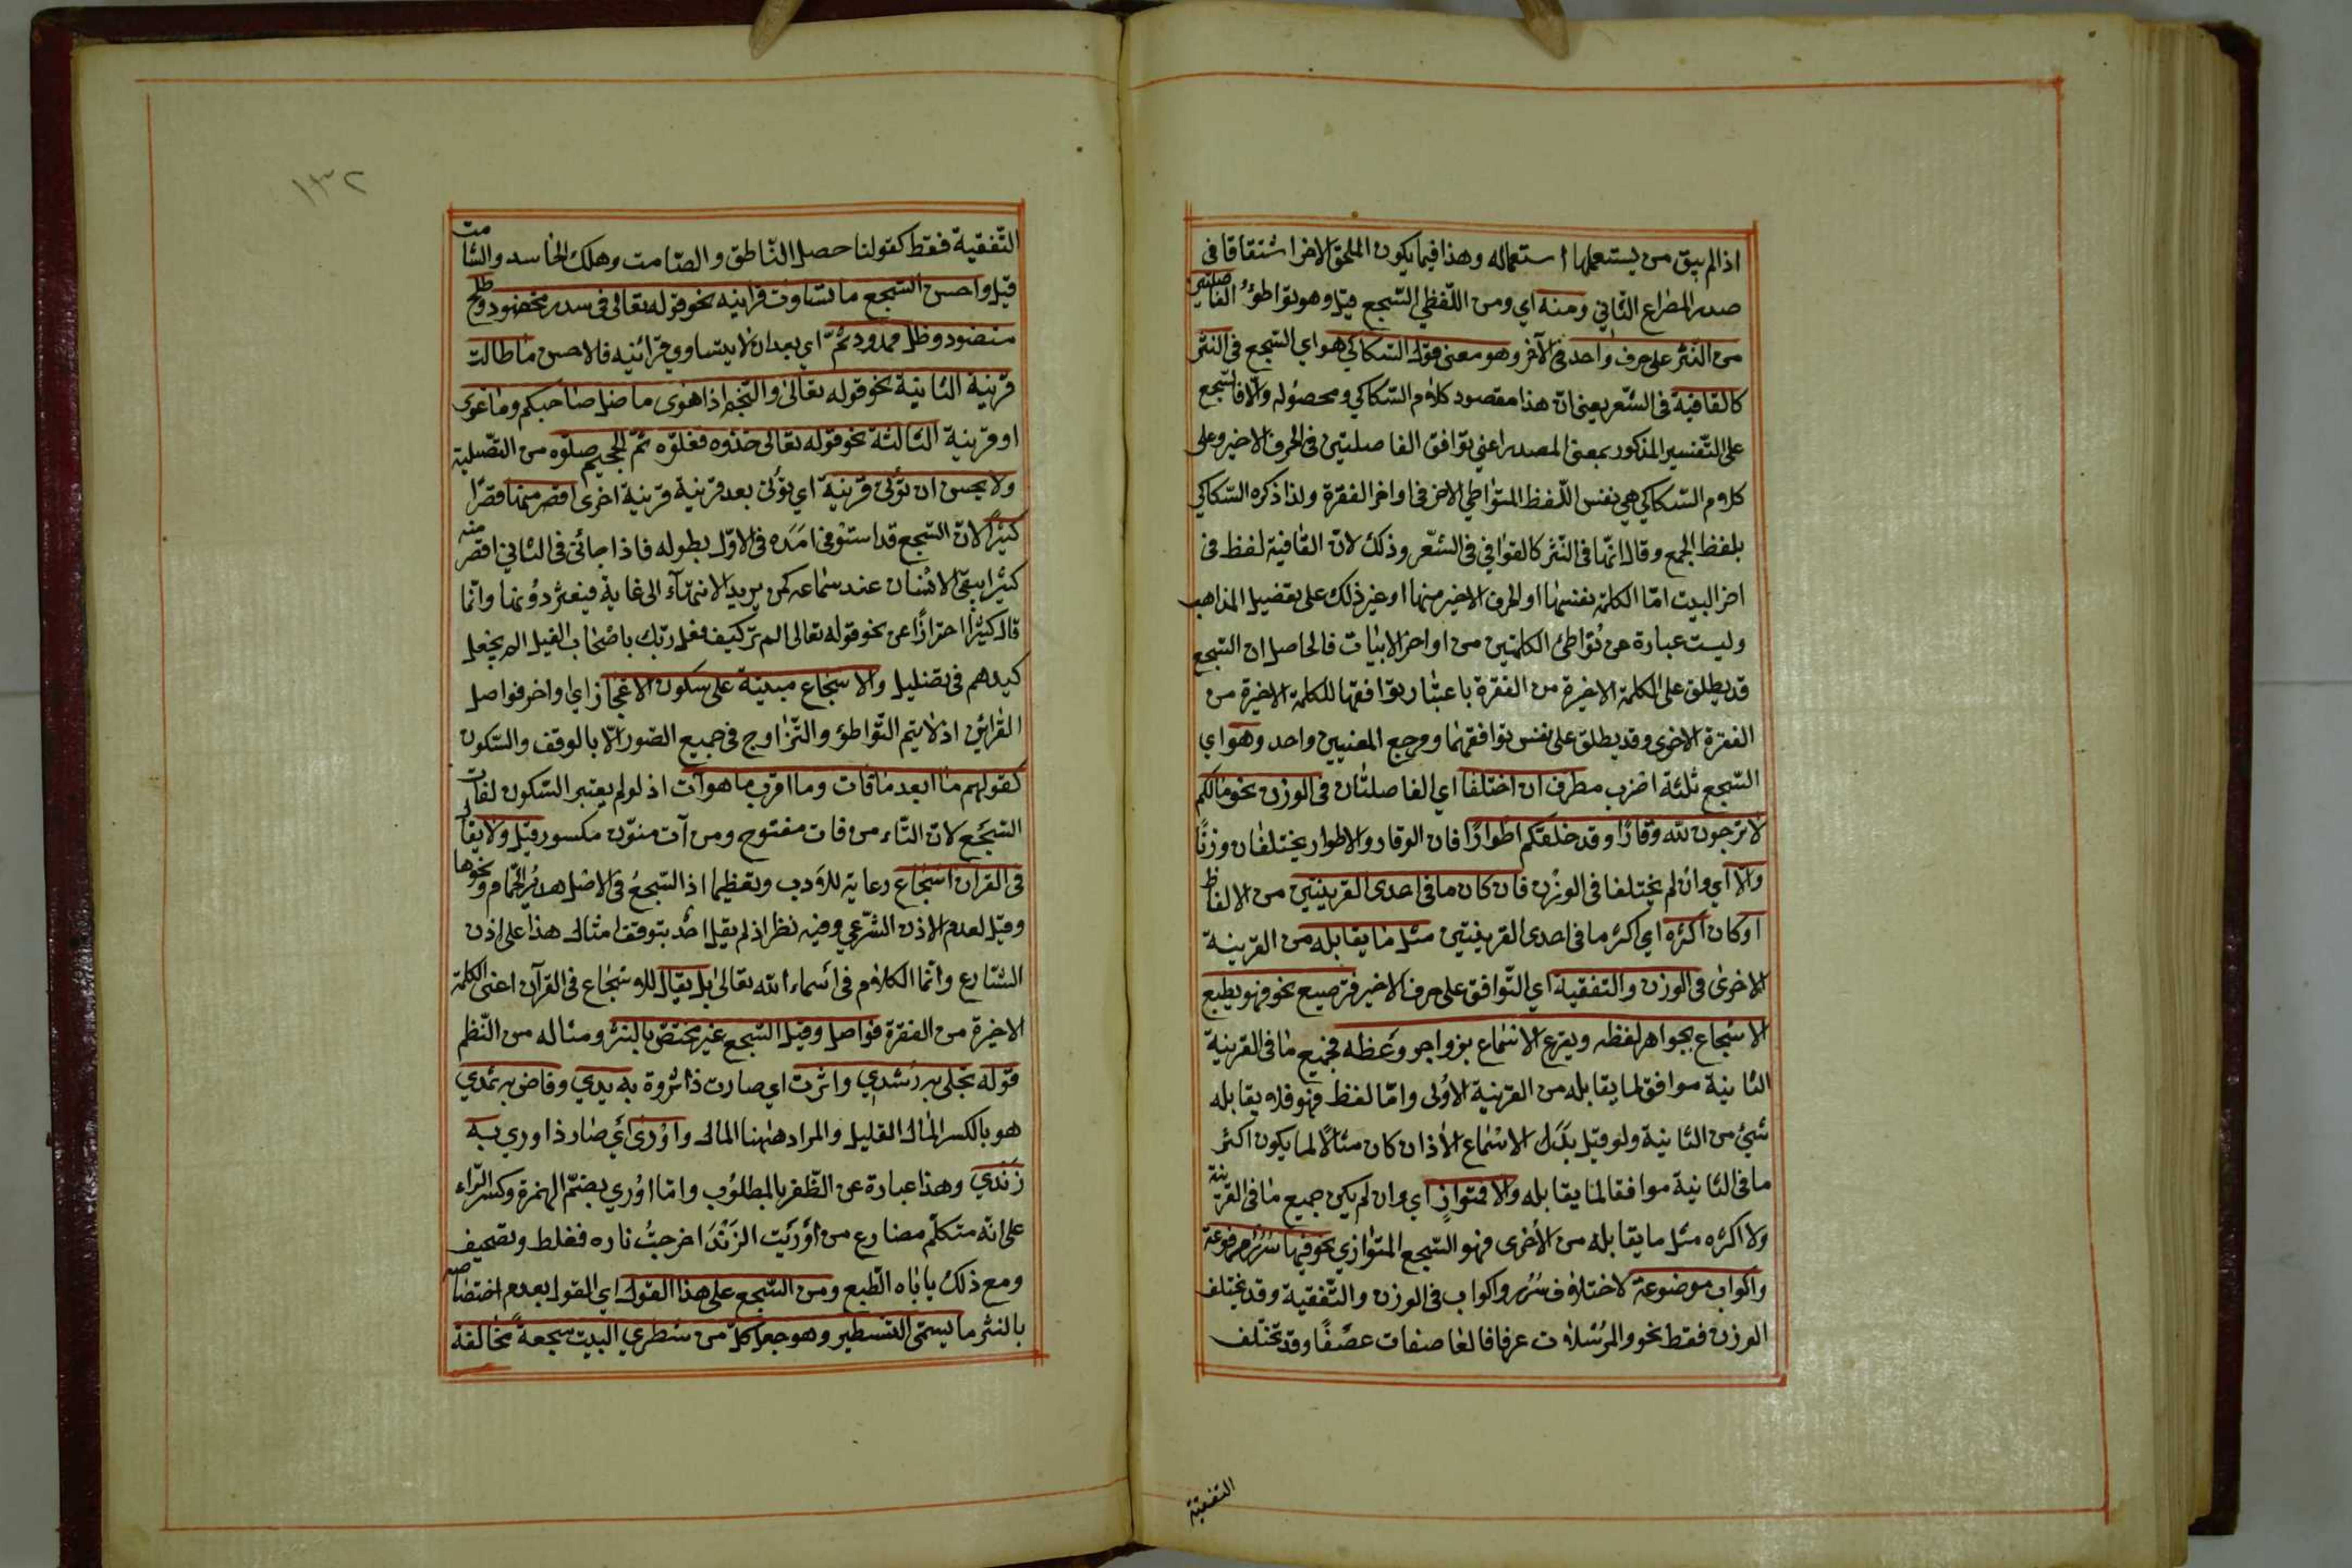 اذ الم يبق من يستعملها استعماله وهذا فيما يكون الملحق الاخر اشتقاقا فى
صدر المصراع الثاني ومنه اي ومن اللّفظي السّجع قيل وهو تواطؤ الفاصلتين
من النّثر على حرف واحد فى الآخر وهو معنى قول السّكاكي هو اي السّجع فى النثر
كالقافية فى الشّعر يعنى انّ هذا مقصود كلام السّكاكي ومحصوله والّا فالسّجع
على التّفسير المذكور بمعنى المصدر اعني توافق الفاصلتين فى الحرف الاخير وعلى
كلام السّكاكي هي نفس اللّفظ المتواطي الاخر فى اواخر الفقرة ولذا ذكره السّكاكي
بلفظ الجمع وقال انّها فى النّثر كالقوافي فى الشّعر وذلك لانّ القافية لفظ فى
اخر البيت امّا الكلمة نفسها او الحرف الاخير منها او غير ذلك على تفصيل المذاهب
وليست عبارة عن تواطئ الكلمتين من اواخر الابيات فالحاصل ان السّجع
قد يطلق على الكلمة الاخيرة من الفقرة باعتبار توافقها للكلمة الاخيرة من
الفقرة الاخرى وقد يطلق على نفس توافقهما ومرجع المعنيين واحد وهو اي
السّجع ثلثة اضرب مطرف ان اختلفا اي الفاصلتان فى الوزن نحو مالكم
لا ترجون لله وقارًا وقد خلقكم اطوارًا فان الوقار والاطوار يختلفان وزنًا
والّا اي وان لم يختلفا فى الوزن فان كان ما فى احدى القرينتين من الالفاظ
او كان اكثره اي اكثر ما فى احدى القرينتين مثل ما يقابله من القرينة
الاخرى فى الوزن والتفقية اي التّوافق على حرف الاخير فترصيع نحو فهو يطبع
الاسجاع بجواهر لفظه ويقرع الاسماع بزواجر وعظه فجميع ما فى القرينة
الثانية موافق لما يقابله من القرينة الاولى وامّا لفظ فهو فلا يقابله
شيئ من الثانية ولو قيل بدل الاسماع الاذان كان مثالًا لما يكون اكثر
ما فى الثانية موافقا لما يقابله والّا فمتوازٍ اي وان لم يكن جميع ما فى القرينة
ولا اكثره مثل ما يقابله من الأخرى فهو السّجع المتوازي نحو فيها سرر مرفوعة
واكواب موضوعة لاختلاف سرر واكواب فى الوزن والتّفقية وقد يختلف
الوزن فقط نحو والمرسلات عرفا فالعاصفات عصفًا وقد تختلف
التفقية
١٣٢
التّفقية فقط كقولنا حصل النّاطق والصّامت وهلك الحاسد والشّامت
قيل واحسن السّجع ما تساوت قراينه نحو قوله تعالى فى سدر مخضود وطلح
منضود وظل ممدود ثمّ اي بعد ان لا يتساوى قرائنه فالاحسن ما طالت
قرينة الثانية نحو قوله تعالى والنّجم اذا هوى ما ضل صاحبكم وما غوى
او قرينة الثالثة نحو قوله تعالى خذوه فغلّوه ثمّ الجحيم صلّوه من التّصلية
ولا يحسن ان تؤلى قرينة اي تؤلى بعد قرينة قرينة اخرى اقصر منها قصرًا
كثيرًا لانّ السّجع قد استوفى امده فى الاوّل بطوله فاذا جائ فى الثاني اقصر منه
كثيرًا يبقى الانسان عند سماعه كمن يريد الانتهآء الى غاية فيعثر دونها وانّما
قال كثيرًا احترازًا عن نحو قوله تعالى الم تر كيف فعل ربّك باصحاب الفيل الم يجعل
كيدهم فى تضليل والاسجاع مبنية على سكون الاعجاز اي اواخر فواصل
القرائن اذ لا يتم التّواطؤ والتّزاوج فى جميع الصّور الّا بالوقف والسّكون
كقولهم ما ابعد ما فات وما اقرب ما هو آت اذ لو لم يعتبر السّكون لفات
السّجع لانّ التّاء من فات مفتوح ومن آت منوّن مكسور قيل ولا يقال
فى القران اسجاع رعاية للادب وتعظيما اذ السّجع فى الاصل هدير الحمام ونحوها
وقيل لعدم الاذن الشّرعي وفيه نظر اذ لم يقل احد بتوقف امثال هذا على اذن
الشّارع وانّما الكلام فى اسماء الله تعالى بل يقال للاسجاع فى القرآن اعنى الكلمة
الاخيرة من الفقرة فواصل وقيل السّجع غير مختصّ بالنثر ومثاله من النّظم
قوله تجلى به رشدي واثرت اي صارت ذا ثروة به يدي وفاض به ثمدي
هو بالكسر المال القليل والمراد ههنا المال واورى اي صار ذا وري به
زندي وهذا عبارة عن الظّفر بالمطلوب وامّا اوري بضمّ الهمزة وكسر الرّاء
على انّه متكلّم مضارع من أوريت الزند اخرجت ناره فغلط وتصحيف
ومع ذلك ياباه الطّبع ومن السّجع على هذا القول اي القول بعدم اختصاصه
بالنثر ما يسمّى التشطير وهو جعل كلّ من شطري البيت سجعة مخالفة